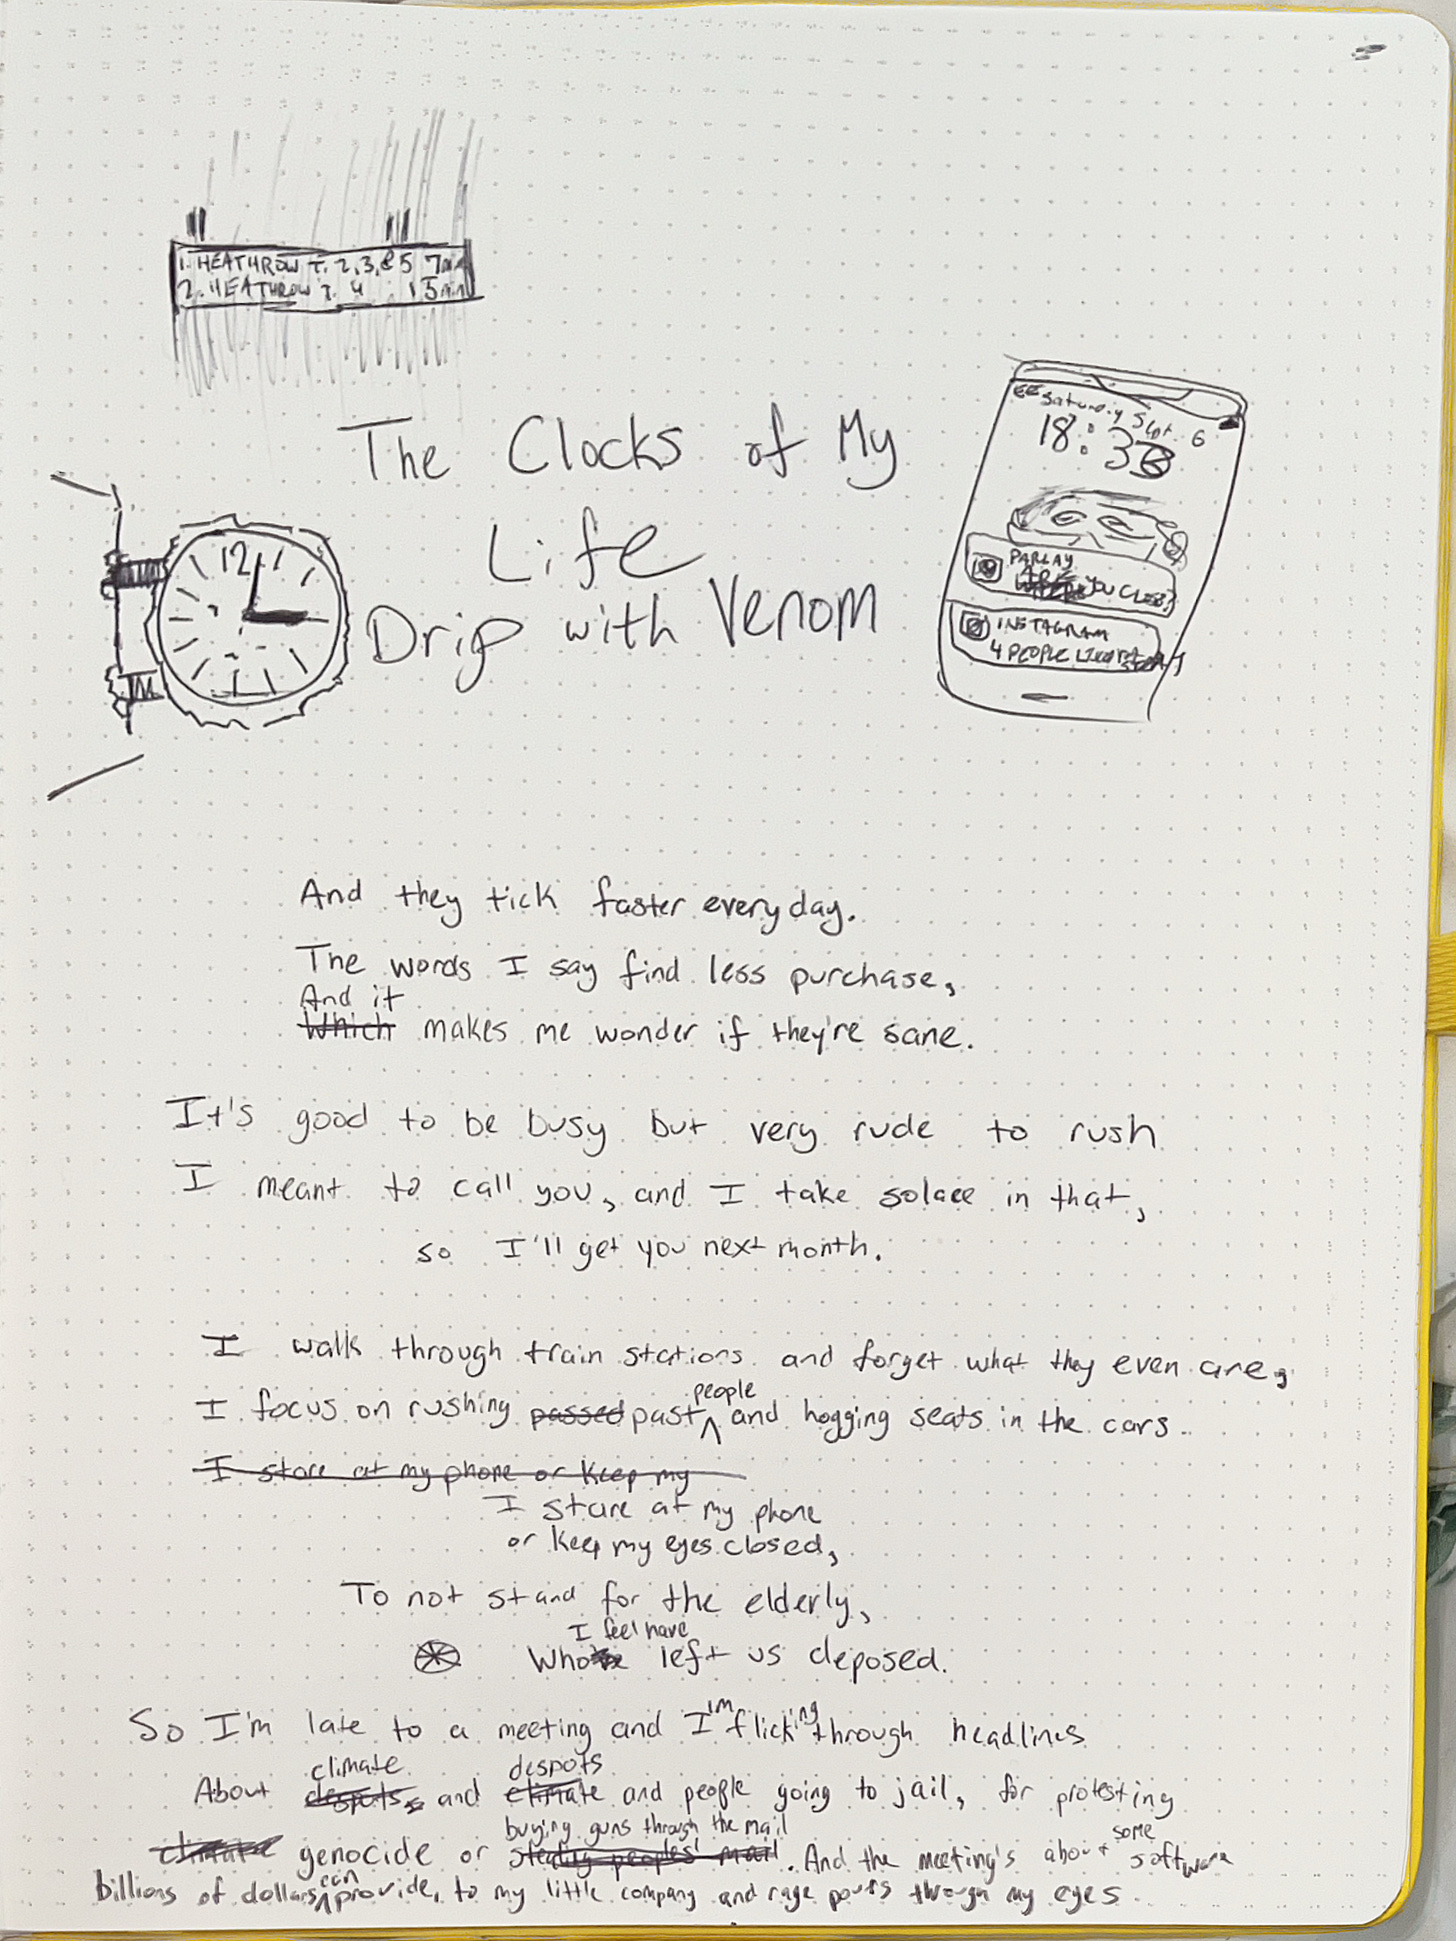 1. HEATHROW T. 2,3,& 5 7min
2. HEATHROW T. 4 15min
The Clocks of My
Life
Drip with Venom
12
EE Saturday Sept. 6
18:33
PARLAY
ARE YOU CLOSE?
INSTAGRAM
4 PEOPLE LIKED
And they tick faster everyday.
The words I say find less purchase,
And it
Which makes me wonder if they're sane.
It's good to be busy but very rude to rush
I meant to call you, and I take solace in that,
so I'll get you next month.
I walk through train stations and forget what they even are,
people
I focus on rushing passed past ^ and hogging seats in the cars.
I stare at my phone or keep my
I stare at my phone
or keep my eyes closed,
To not stand for the elderly,
I feel have
Who left us deposed.
So I'm late to a meeting and I'm flicking through headlines
climate despots
About despots, and climate and people going to jail, for protesting
buying guns through the mail some
climate genocide or stealing peoples' mail. And the meeting's about software
can
billions of dollars ^ provide, to my little company and rage pours through my eyes.